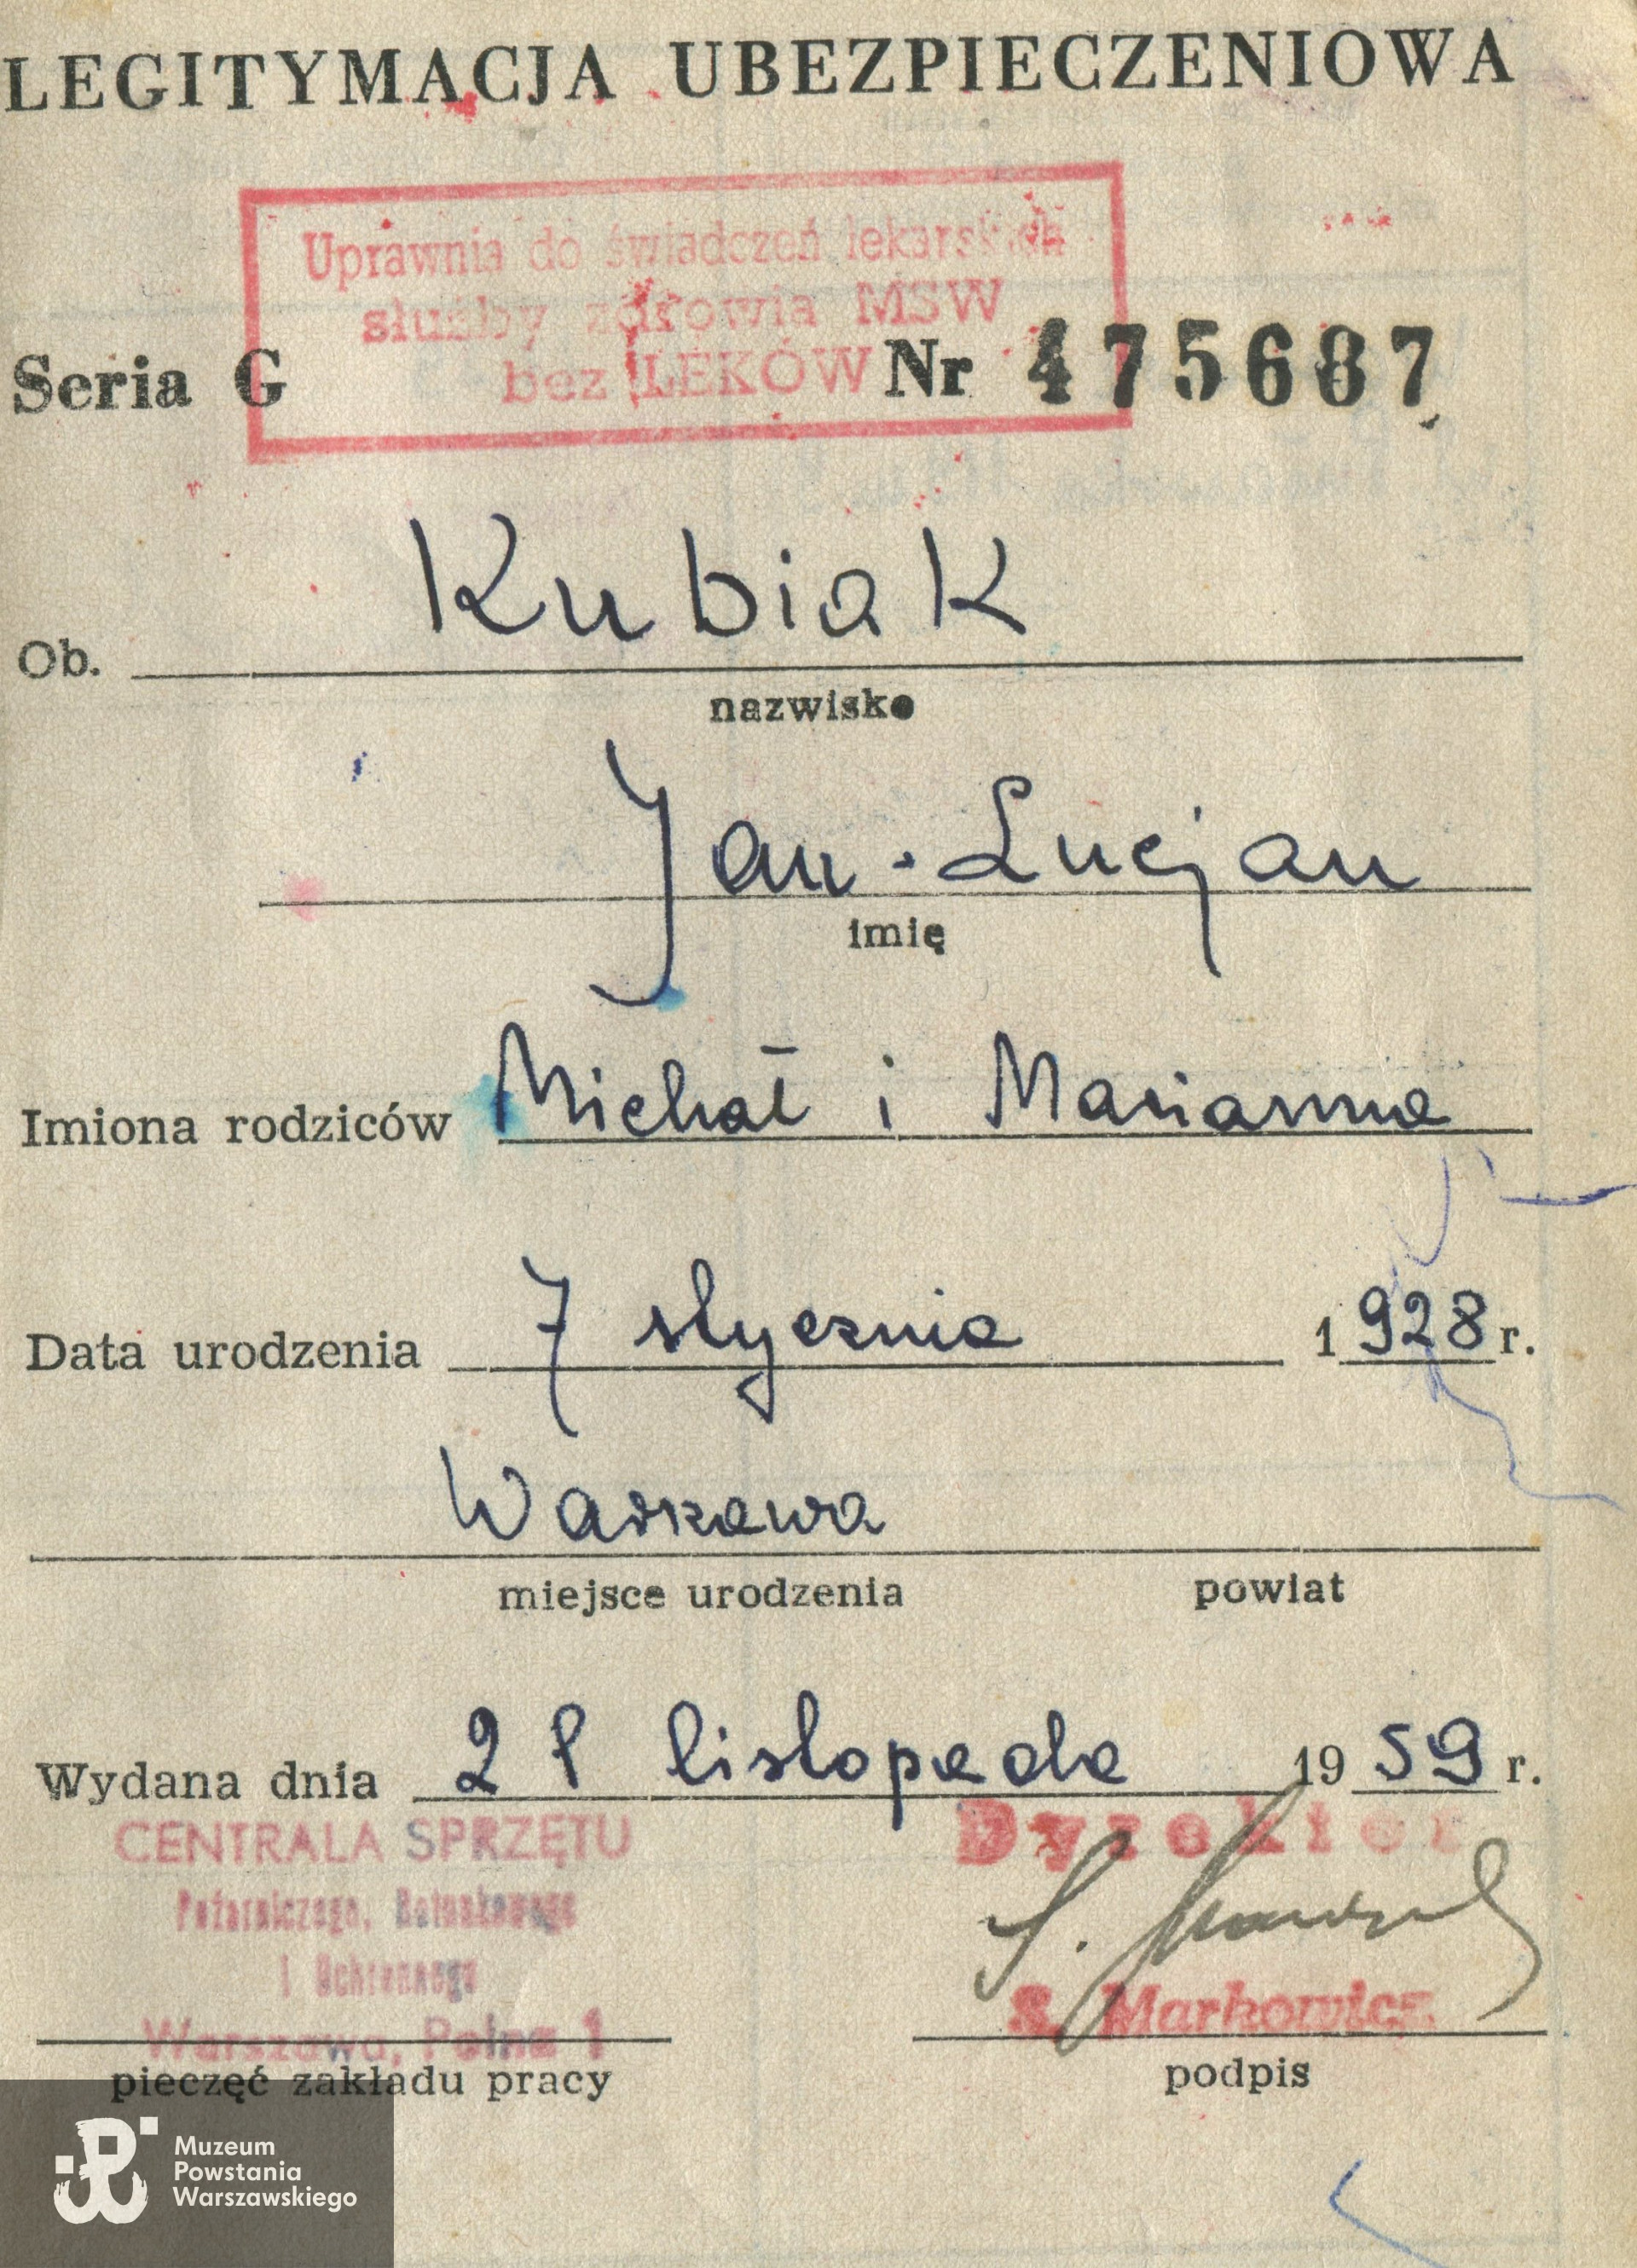 LEGITYMACJA UBEZPIECZENIOWA
Uprawnia do świadczeń lekarskich
służby zdrowia MSW
bez LEKÓW
Seria G Nr 475687
Kubiak
Ob.
nazwisko
Jan-Lucjan
imię
Imiona rodziców Michał i Marianna
Data urodzenia 7 stycznia 1928 r.
Warszawa
miejsce urodzenia powiat
Wydana dnia listopada 1959 r.
CENTRALA SPRZĘTU Dyrektor
Pożarniczego, Ratunkowego
i Ochronnego
Warszawa, Polna 1 S. Markowicz
pieczęć zakładu pracy podpis
Muzeum
Powstania
Warszawskiego